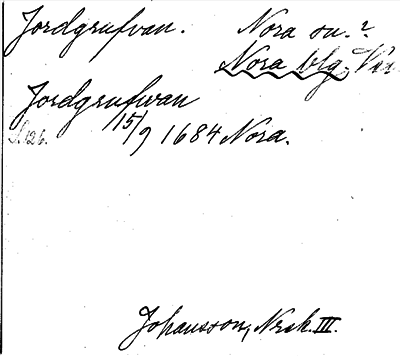 Jordgrufvan. Nora sn.?
Nora blg. Vm
Jordgrufwan
S. 126. 15/9 1684 Nora.
Johansson, Nrsk. III.